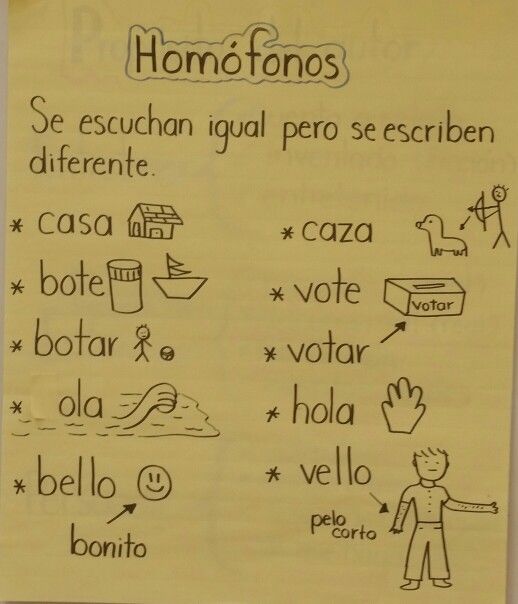 Homófonos
Se escuchan igual pero se escriben
diferente.
* casa * caza
* bote * vote
votar
* botar * votar
* ola * hola
* bello * vello
bonito
pelo
corto